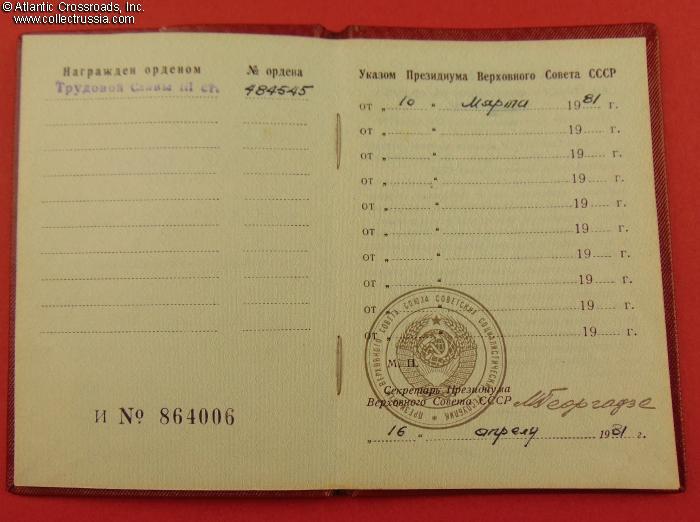 © Atlantic Crossroads, Inc.
www.collectrussia.com
Награжден орденом № ордена
Трудовой Славы III ст. 484545
И № 864006
Указом Президиума Верховного Совета СССР
от „ 10 “ Марта 1981 г.
от „ “ 19 г.
от „ “ 19 г.
от „ “ 19 г.
от „ “ 19 г.
от „ “ 19 г.
от „ “ 19 г.
от „ “ 19 г.
от „ “ 19 г.
от „ “ 19 г.
ПРЕЗИДИУМ ВЕРХОВНОГО СОВЕТА СОЮЗА СОВЕТСКИХ СОЦИАЛИСТИЧЕСКИХ РЕСПУБЛИК
М. П.
Секретарь Президиума
Верховного Совета СССР МГеоргадзе
„ 16 “ апрелу 1981 г.